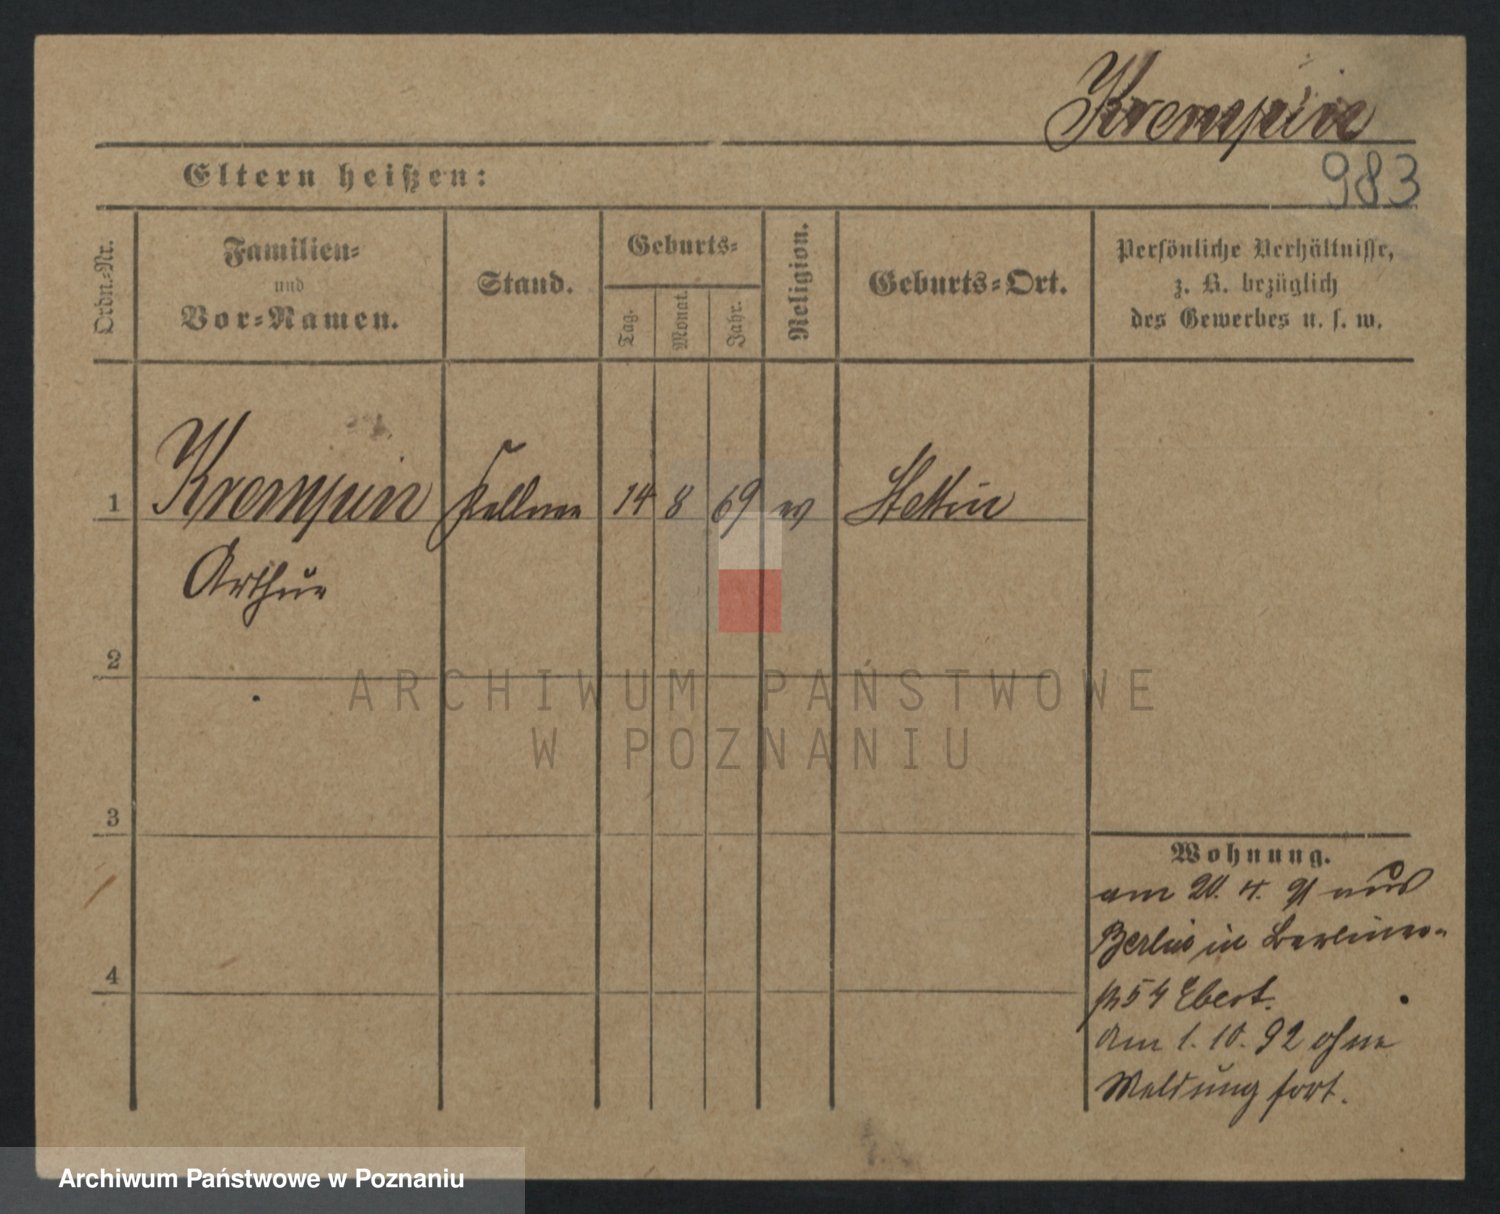 Krempin
983
Eltern heißen:
Ordn.-Nr.
Familien-
und
Vor-Namen.
Stand.
Geburts-
Tag.
Monat.
Jahr.
Religion.
Geburts-Ort.
Persönliche Verhältnisse,
z. B. bezüglich
des Gewerbes u. s. w.
1 Krempin Kellner 14 8 69 ev Stettin
Arthur
2
3
4
Wohnung.
am 20. 4. 91 aus
Berlin in Berliner-
54 Ebert.
Am 1. 10. 92 ohne
Meldung fort.
ARCHIWUM PAŃSTWOWE
W POZNANIU
Archiwum Państwowe w Poznaniu